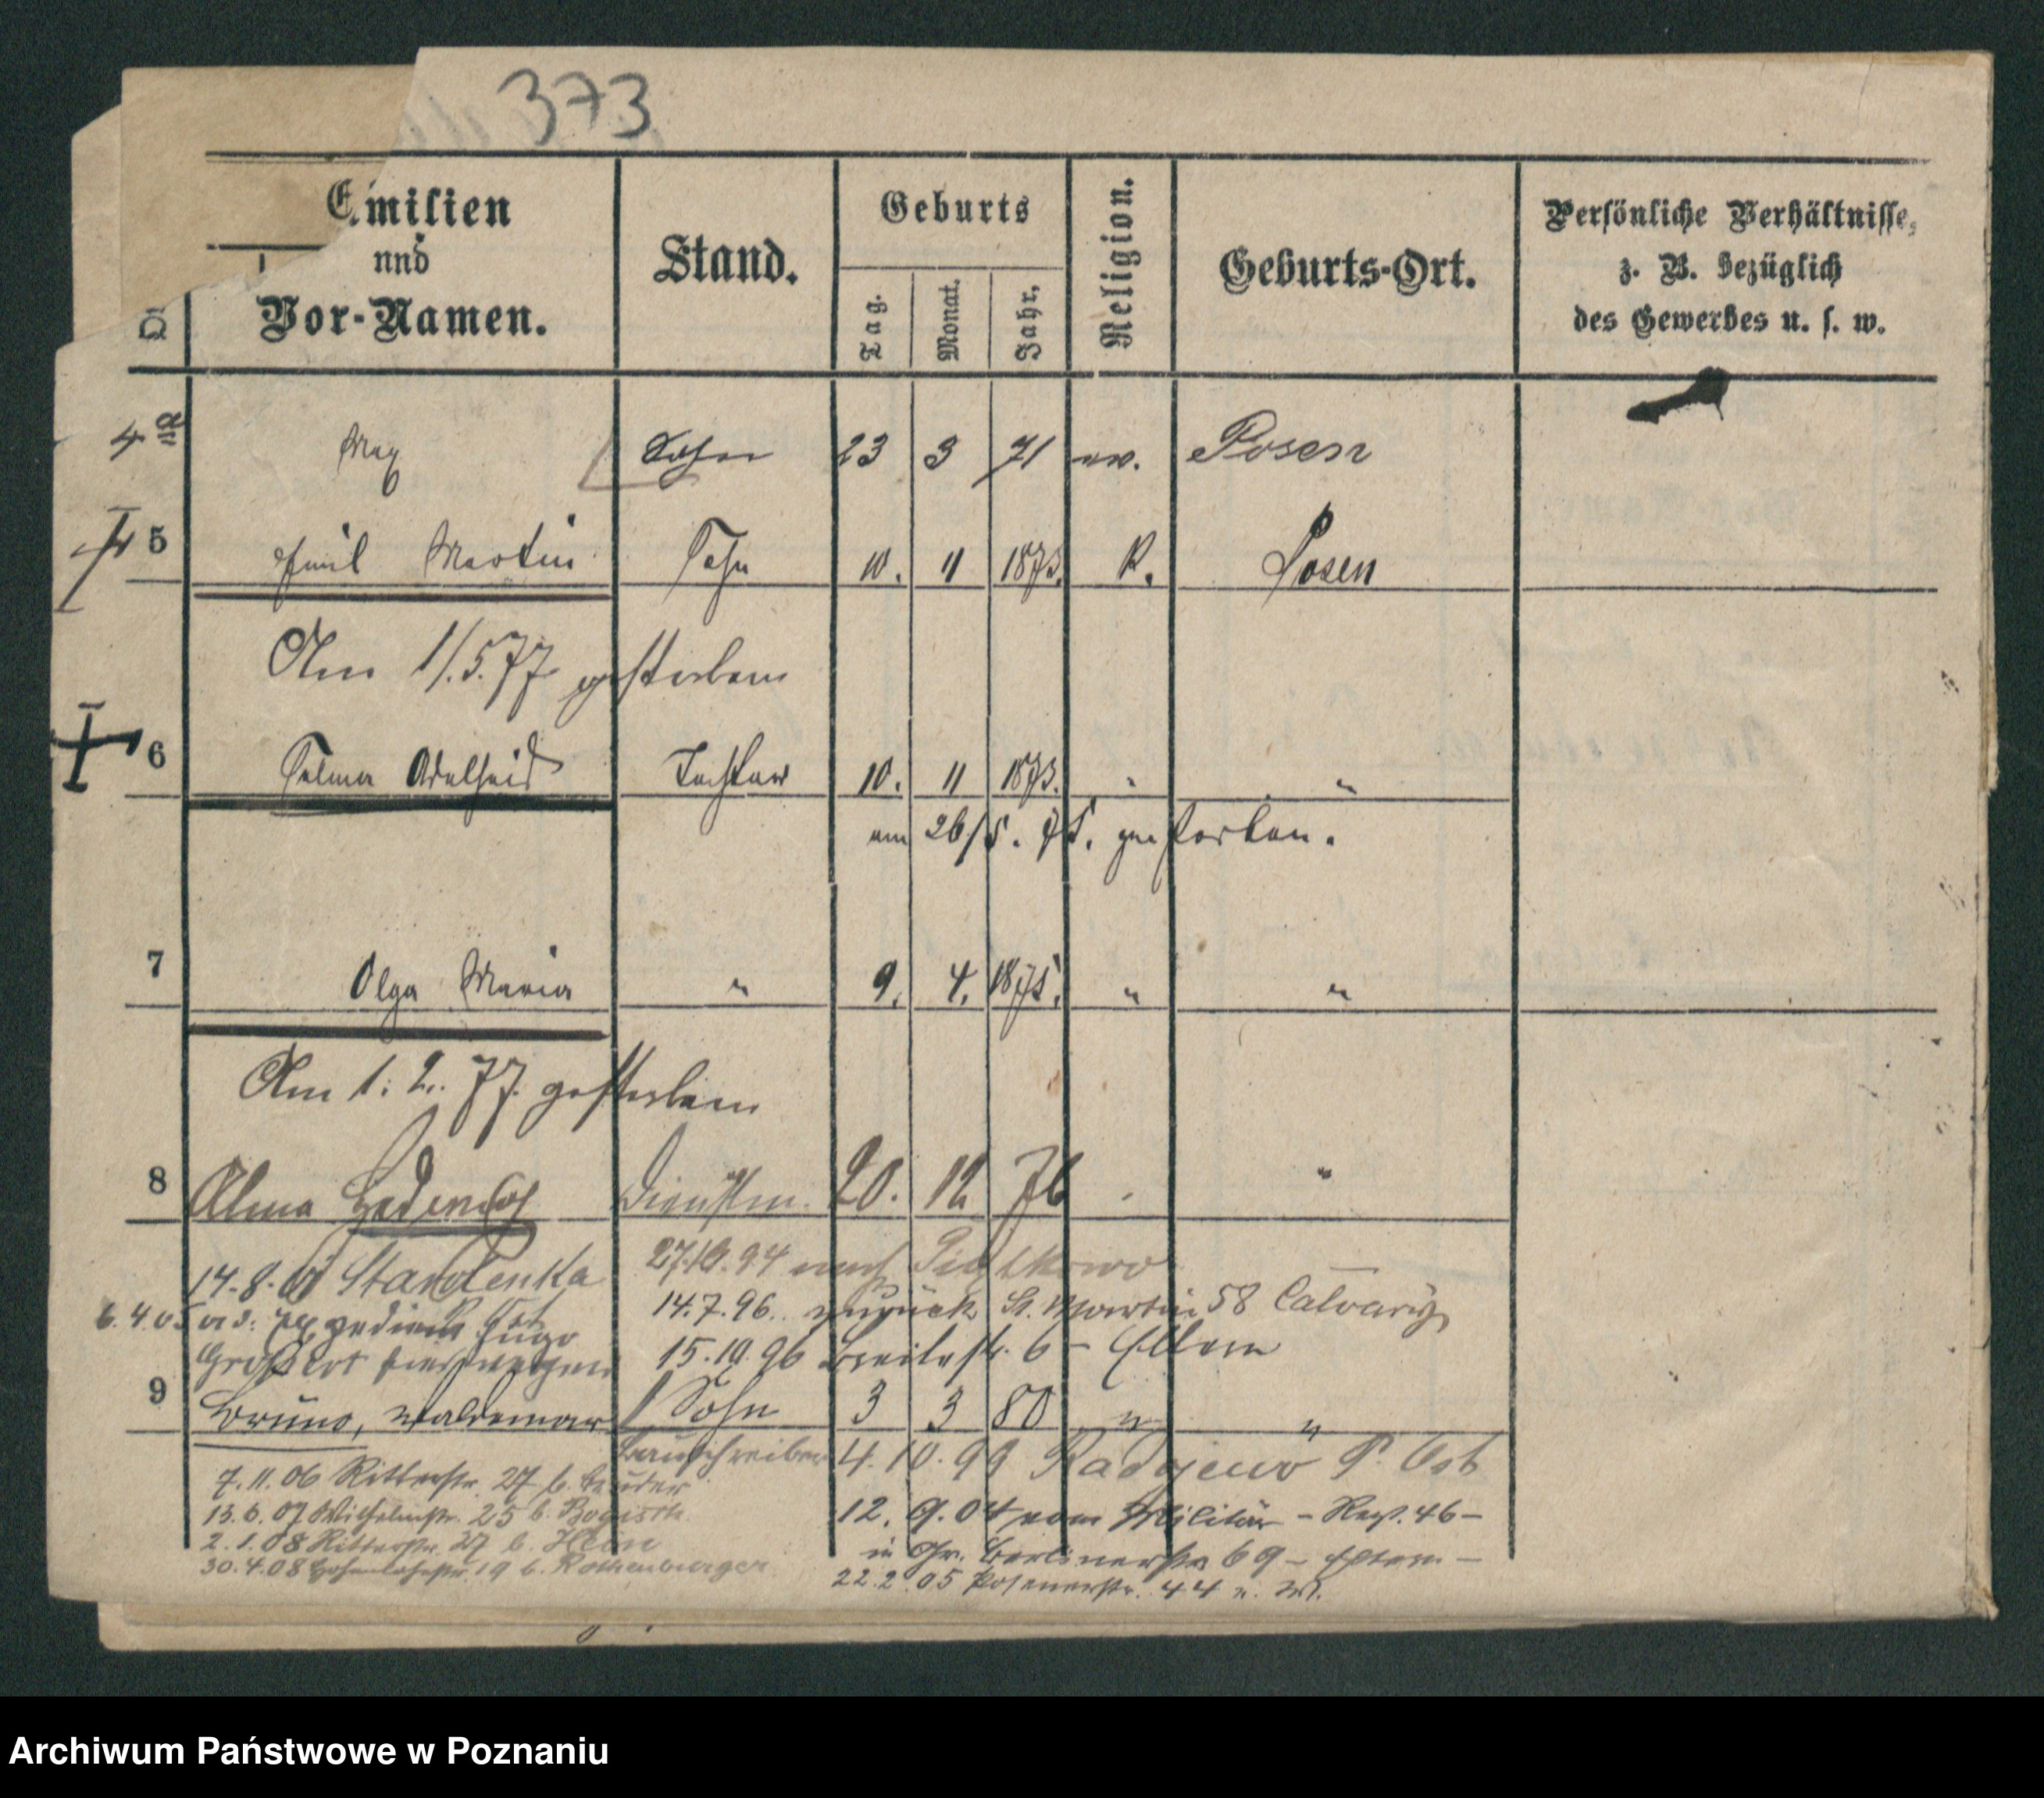 373
Familien
und
Vor-Namen.
Stand.
Geburts
Tag.
Monat.
Jahr.
Religion.
Geburts-Ort.
Persönliche Verhältnisse,
z. B. bezüglich
des Gewerbes u. s. w.
4 a Max Sohn 23 3 71 ev. Posen
5 Emil Martin Sohn 10. 11 1873. K. Posen
Am 1/.5.77 gestorben
6 Selma Adelheid Tochter 10. 11 1873. " "
am 26/5. 75. gestorben.
7 Olga Maria " 9. 4. 1875. " "
Am 1. 2. 77. gestorben
8 Alma Dienstm. 20. 12 76 " "
27.10.94 nach Piątkowo
14.8.01 Starolenka
14.7.96. zurück St. Martin 58 Calvary
6.4.05
15.10.96 Breitestr. 6 - Eltern
9 Bruno, Waldemar Sohn 3 3 80 " "
Bauschreiber 4.10.99 Radojewo P. Ost
7.11.06 Ritterstr. 27 b. Bruder
13.6.07 Wilhelmstr. 25 b.
12. 9. 04 vom Militär - Reg. 46 -
2.1.08 Ritterstr. 27 b. Hein
in Gr. Berlinerstr 69 - Eltern -
30.4.08 Hohenlohestr. 19 b. Rothenburger
22.2.05 Posenerstr. 44 u. W.
Archiwum Państwowe w Poznaniu